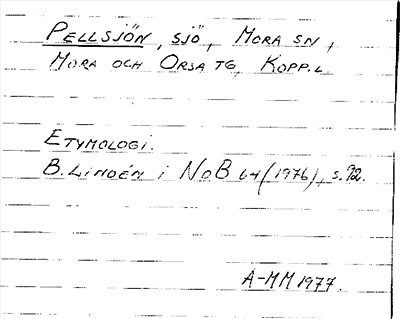 PELLSJÖN, SJÖ, MORA SN,
MORA OCH ORSA TG, KOPP.L
ETYMOLOGI.
B. LINDÉN i NoB 64 (1976), s. 92.
A-MM 1977.